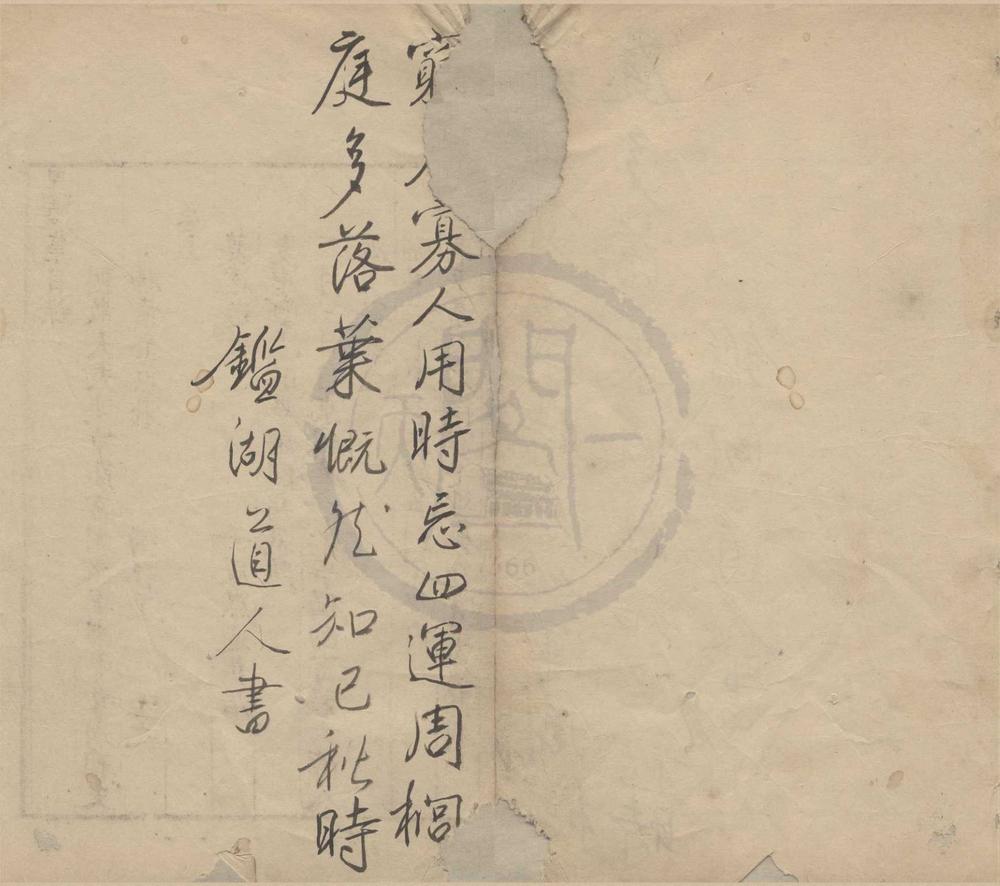 窮人寡人用時忘四運周櫚
庭多落葉慨然知已秋時
鑑湖道人書